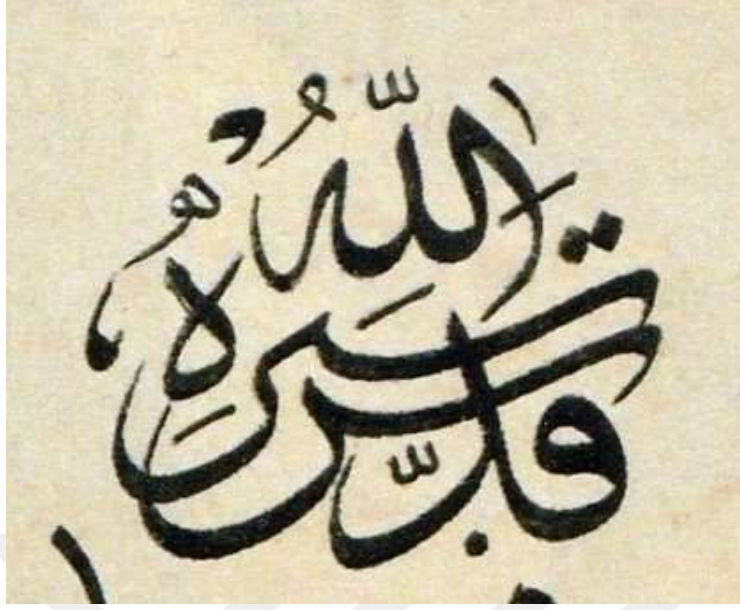 قدس الله سره